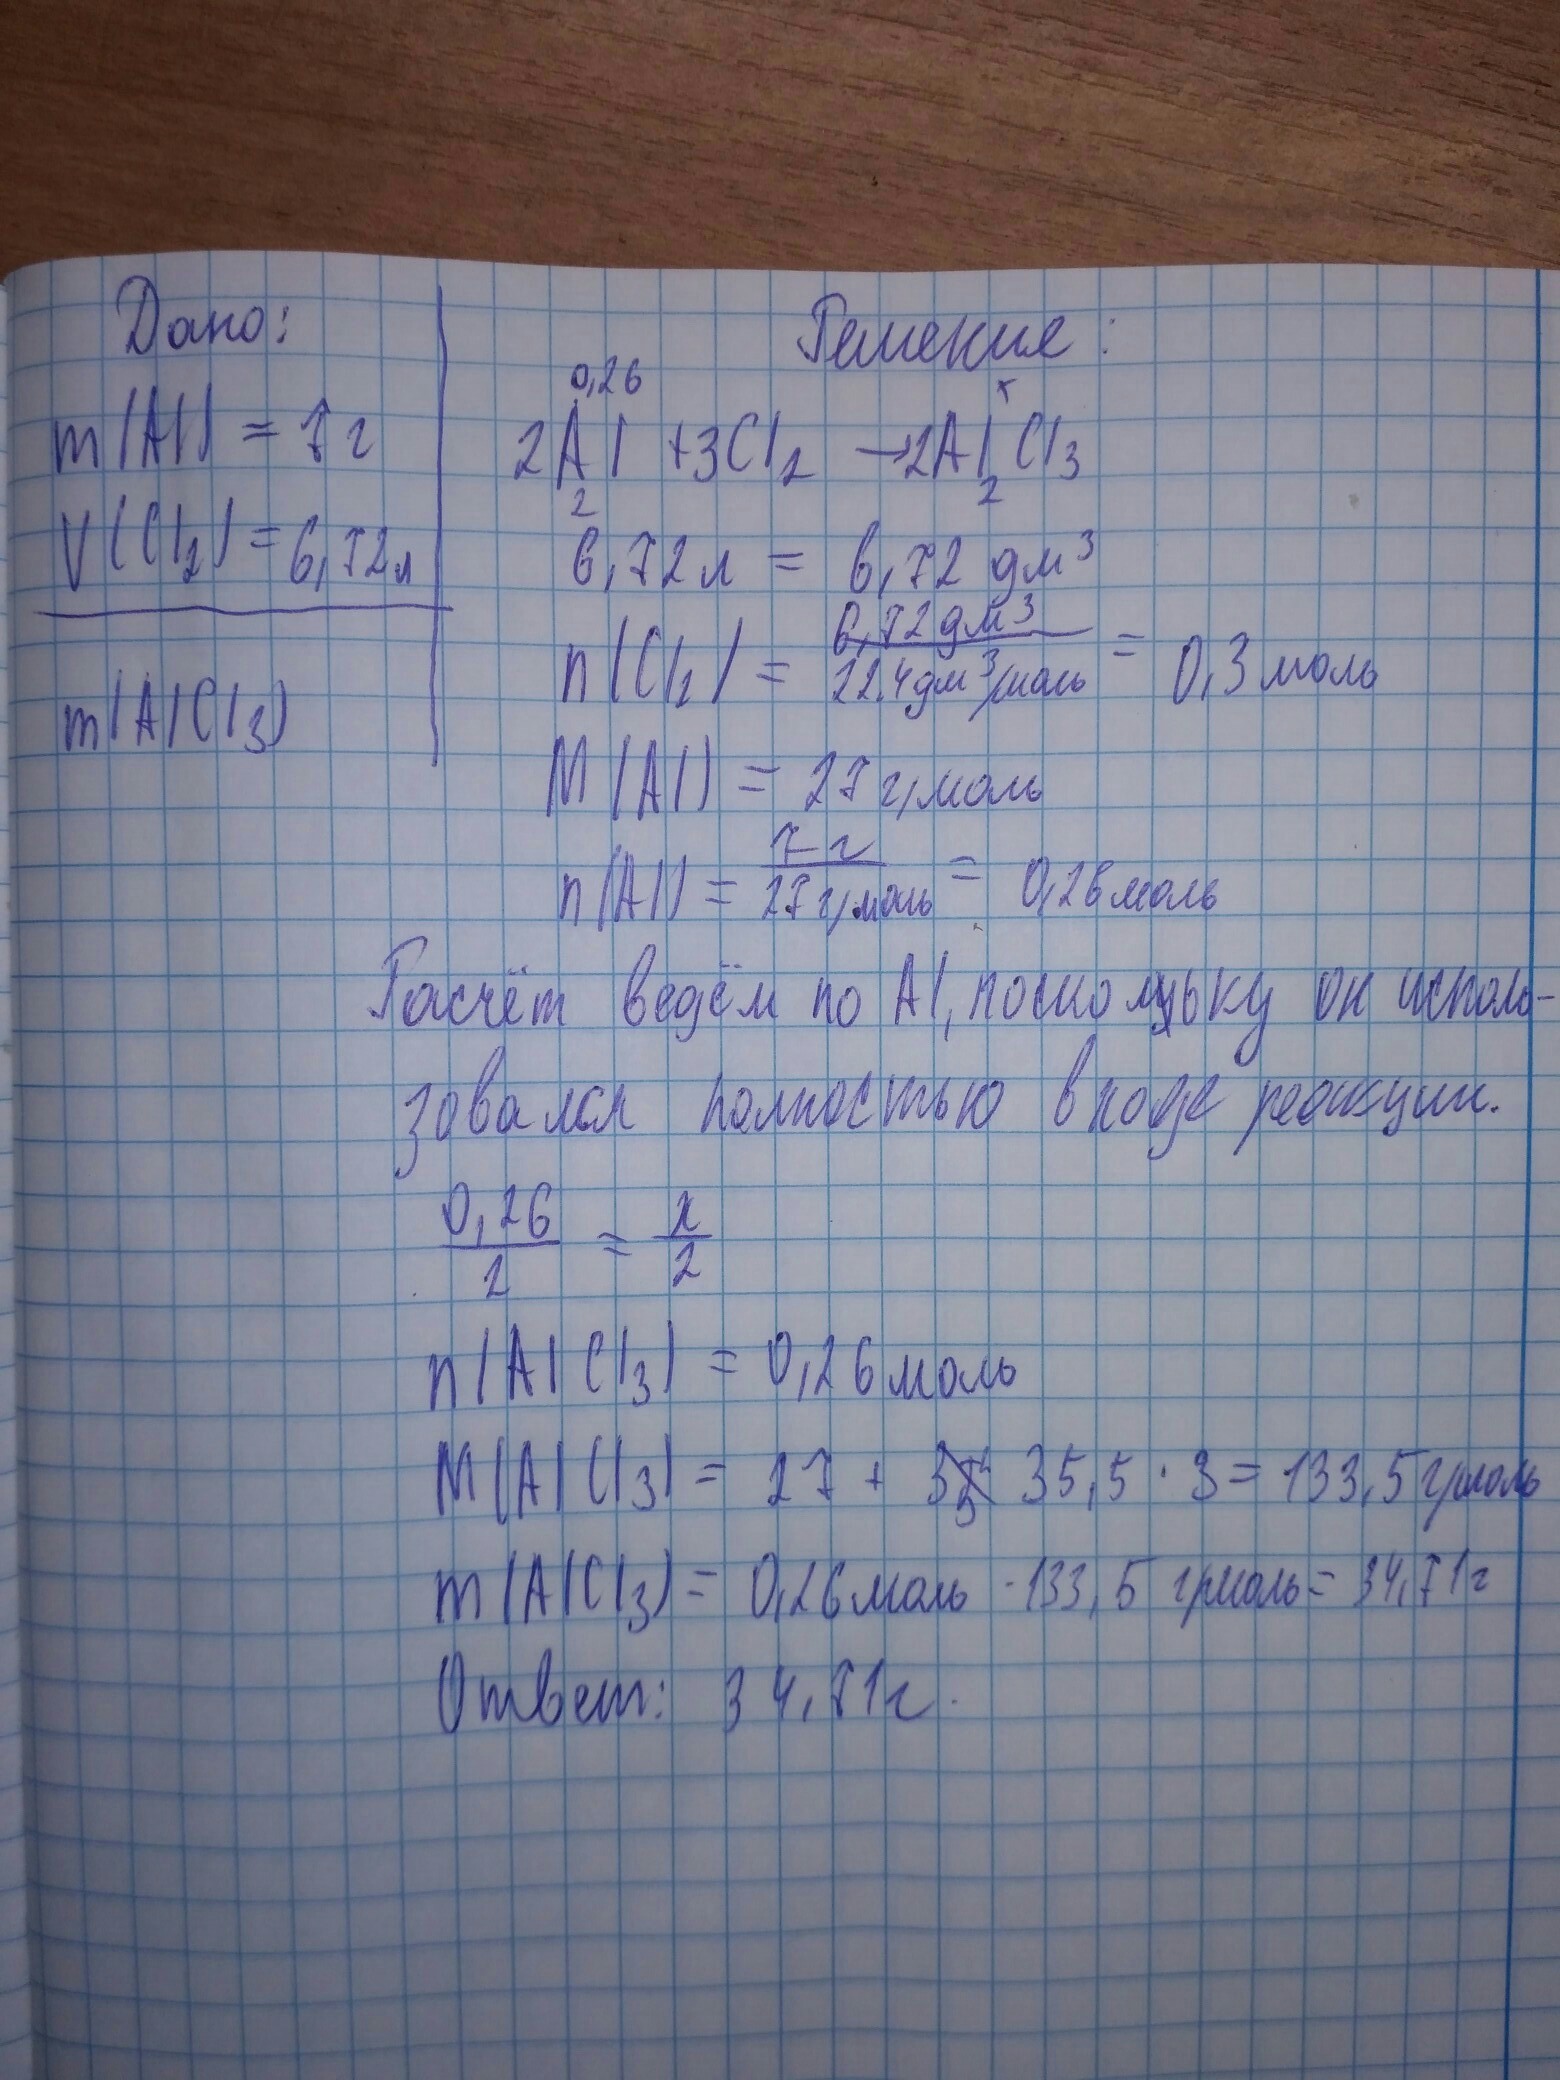 Дано:
m(Al) = 7 г
V(Cl₂) = 6,72л
m(AlCl₃)
Решение:
0,26 x
2Al + 3Cl₂ → 2AlCl₃
2 2
6,72л = 6,72 дм³
n(Cl₂) = 6,72 дм³ / 22.4 дм³/моль = 0,3 моль
M(Al) = 27 г/моль
n(Al) = 7 г / 27 г/моль = 0,26 моль
Расчёт ведём по Al, поскольку он исполь-
зовался полностью в ходе реакции.
0,26 / 2 = x / 2
n(AlCl₃) = 0,26 моль
M(AlCl₃) = 27 + 35,5 · 3 = 133,5 г/моль
m(AlCl₃) = 0,26 моль · 133,5 г/моль = 34,71г
Ответ: 34,71г.